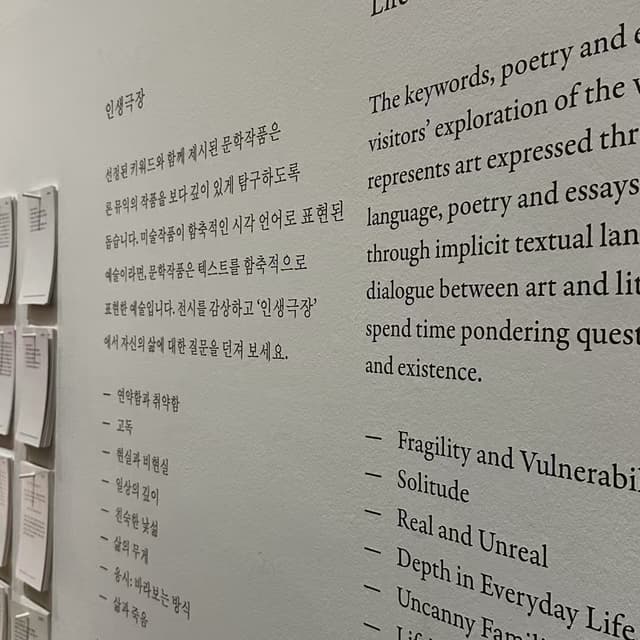 인생극장
선정된 키워드와 함께 제시된 문학작품은
론 뮤익의 작품을 보다 깊이 있게 탐구하도록
돕습니다. 미술작품이 함축적인 시각 언어로 표현된
예술이라면, 문학작품은 텍스트를 함축적으로
표현한 예술입니다. 전시를 감상하고 ‘인생극장’
에서 자신의 삶에 대한 질문을 던져 보세요.
— 연약함과 취약함
— 고독
— 현실과 비현실
— 일상의 깊이
— 친숙한 낯섦
— 삶의 무게
— 응시: 바라보는 방식
— 삶과 죽음
The keywords, poetry and
visitors’ exploration of the
represents art expressed
language, poetry and essays
through implicit textual
dialogue between art and
spend time pondering
and existence.
— Fragility and
— Solitude
— Real and Unreal
— Depth in Everyday Life
— Uncanny